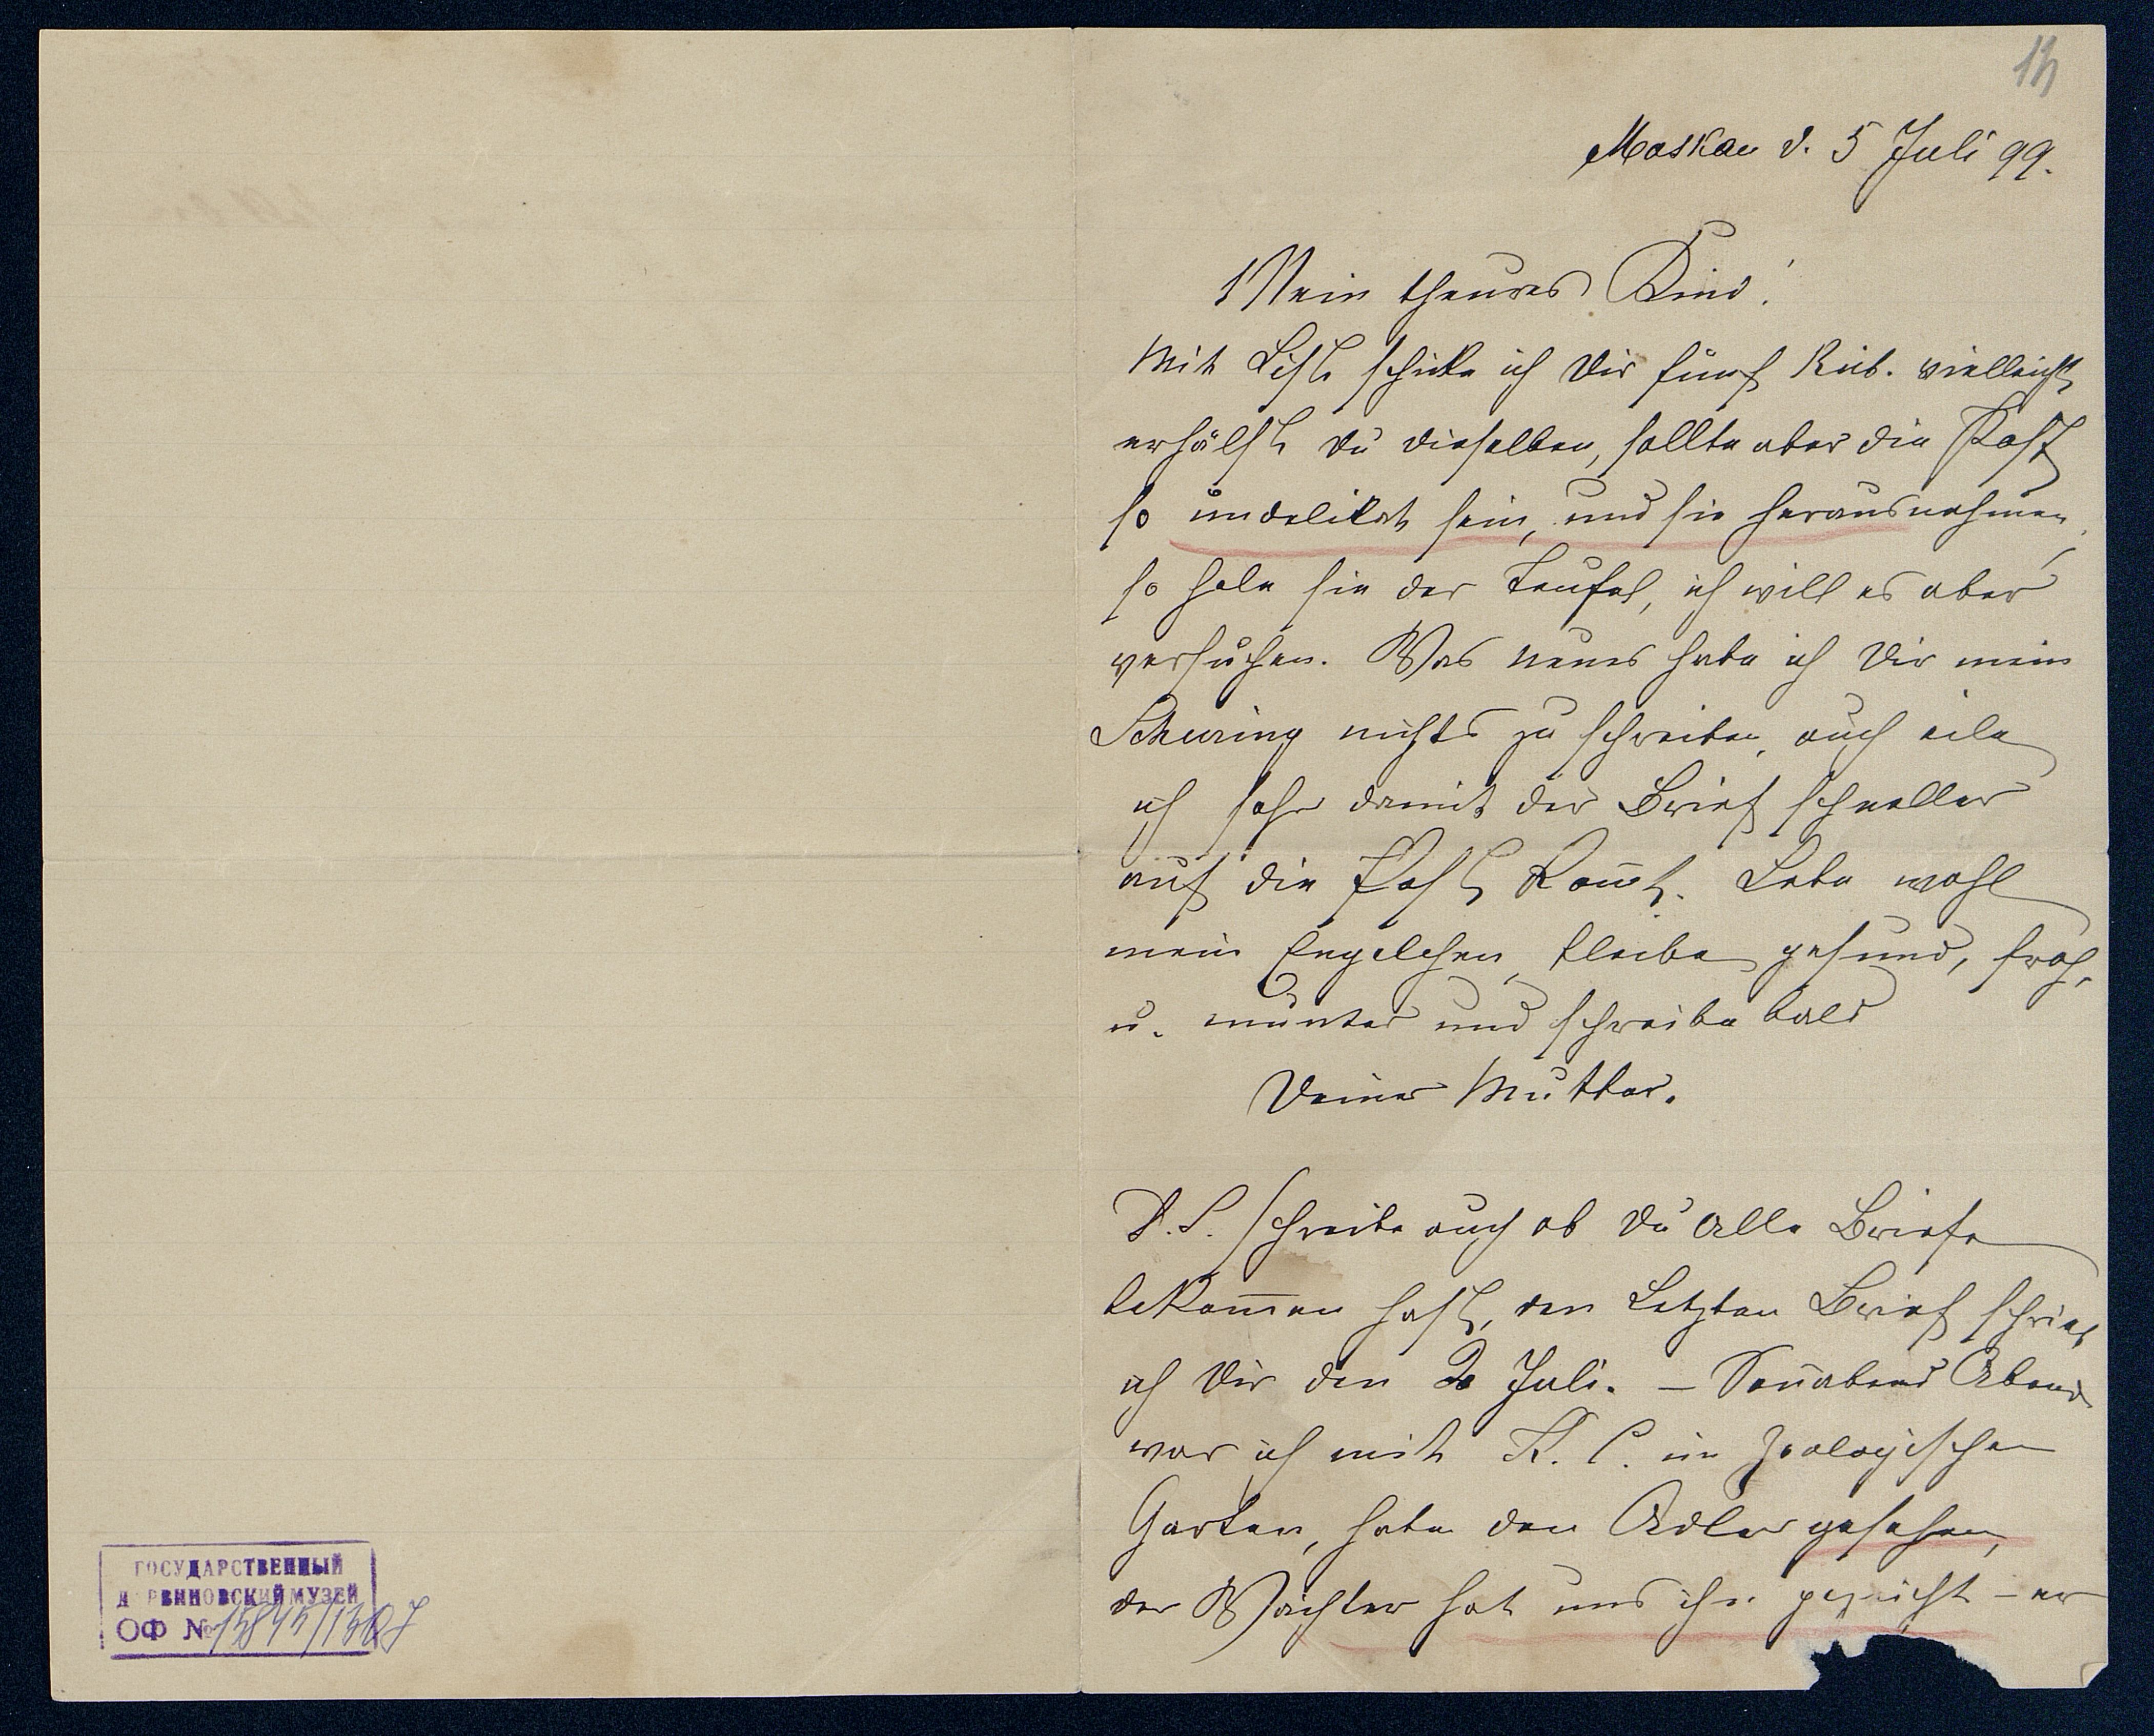 Moskau d. 5 Juli 99.
Mein theures Kind!
Mit List schicke ich Dir fünf Rub. vielleicht
erhälst Du dieselben, sollte aber die Post
so undelikat sein, und sie herausnehmen,
so hole sie der Teufel, ich will es aber
versuchen. Was neues habe ich Dir mein
nichts zu schreiben, auch eile
ich sehr damit der Brief schneller
auf die Post kom̄t. Lebe wohl
mein Engelchen, bleibe gesund, froh,
u. munter und schreibe bald
Deiner Mutter.
P.S. schreibe auch ob Du alle Briefe
bekom̄en hast, den Letzten Brief schrieb
ich Dir den 2 Juli. – Son̄abend Abend
war ich mit K. C. im Zoologischen
Garten, habe den Adler gesehen,
der Wächter hat uns ihn gezeicht – er
ГОСУДАРСТВЕННЫЙ
ДАРВИНОВСКИЙ МУЗЕЙ
ОФ №